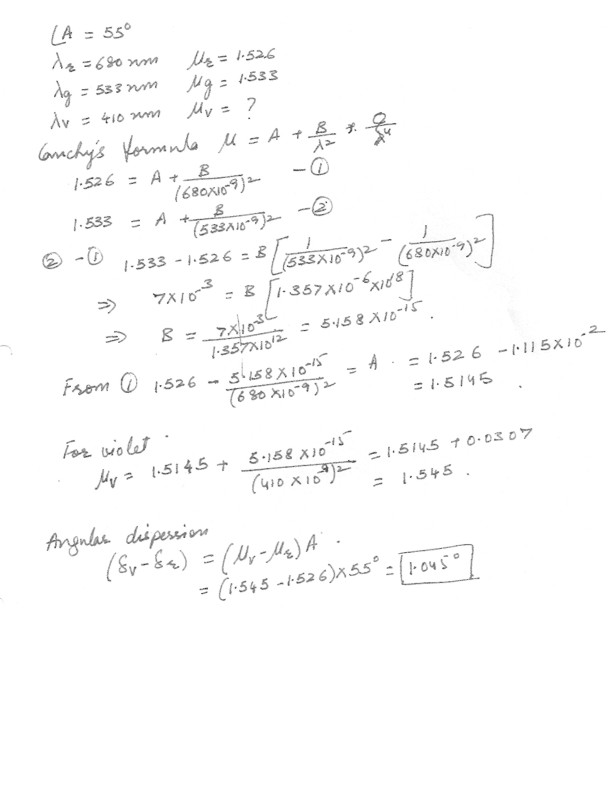 ∠A = 55°
λr = 680 nm    μr = 1.526
λg = 533 nm    μg = 1.533
λv = 410 nm    μv = ?
Cauchy's formula μ = A + B/λ² + C/λ⁴
1.526 = A + B/(680×10⁻⁹)² — ①
1.533 = A + B/(533×10⁻⁹)² — ②
② - ①  1.533 - 1.526 = B[1/(533×10⁻⁹)² - 1/(680×10⁻⁹)²]
⇒ 7×10⁻³ = B [1.357×10⁻⁶×10¹⁸]
⇒ B = 7×10⁻³/1.357×10¹² = 5.158×10⁻¹⁵.
From ① 1.526 - 5.158×10⁻¹⁵/(680×10⁻⁹)² = A. = 1.526 - 1.115×10⁻²
= 1.5145.
For violet.
μv = 1.5145 + 5.158×10⁻¹⁵/(410×10⁻⁹)² = 1.5145 + 0.0307
= 1.545.
Angular dispession
(δv - δr) = (μv - μr)A.
= (1.545 - 1.526)×55° = 1.045°